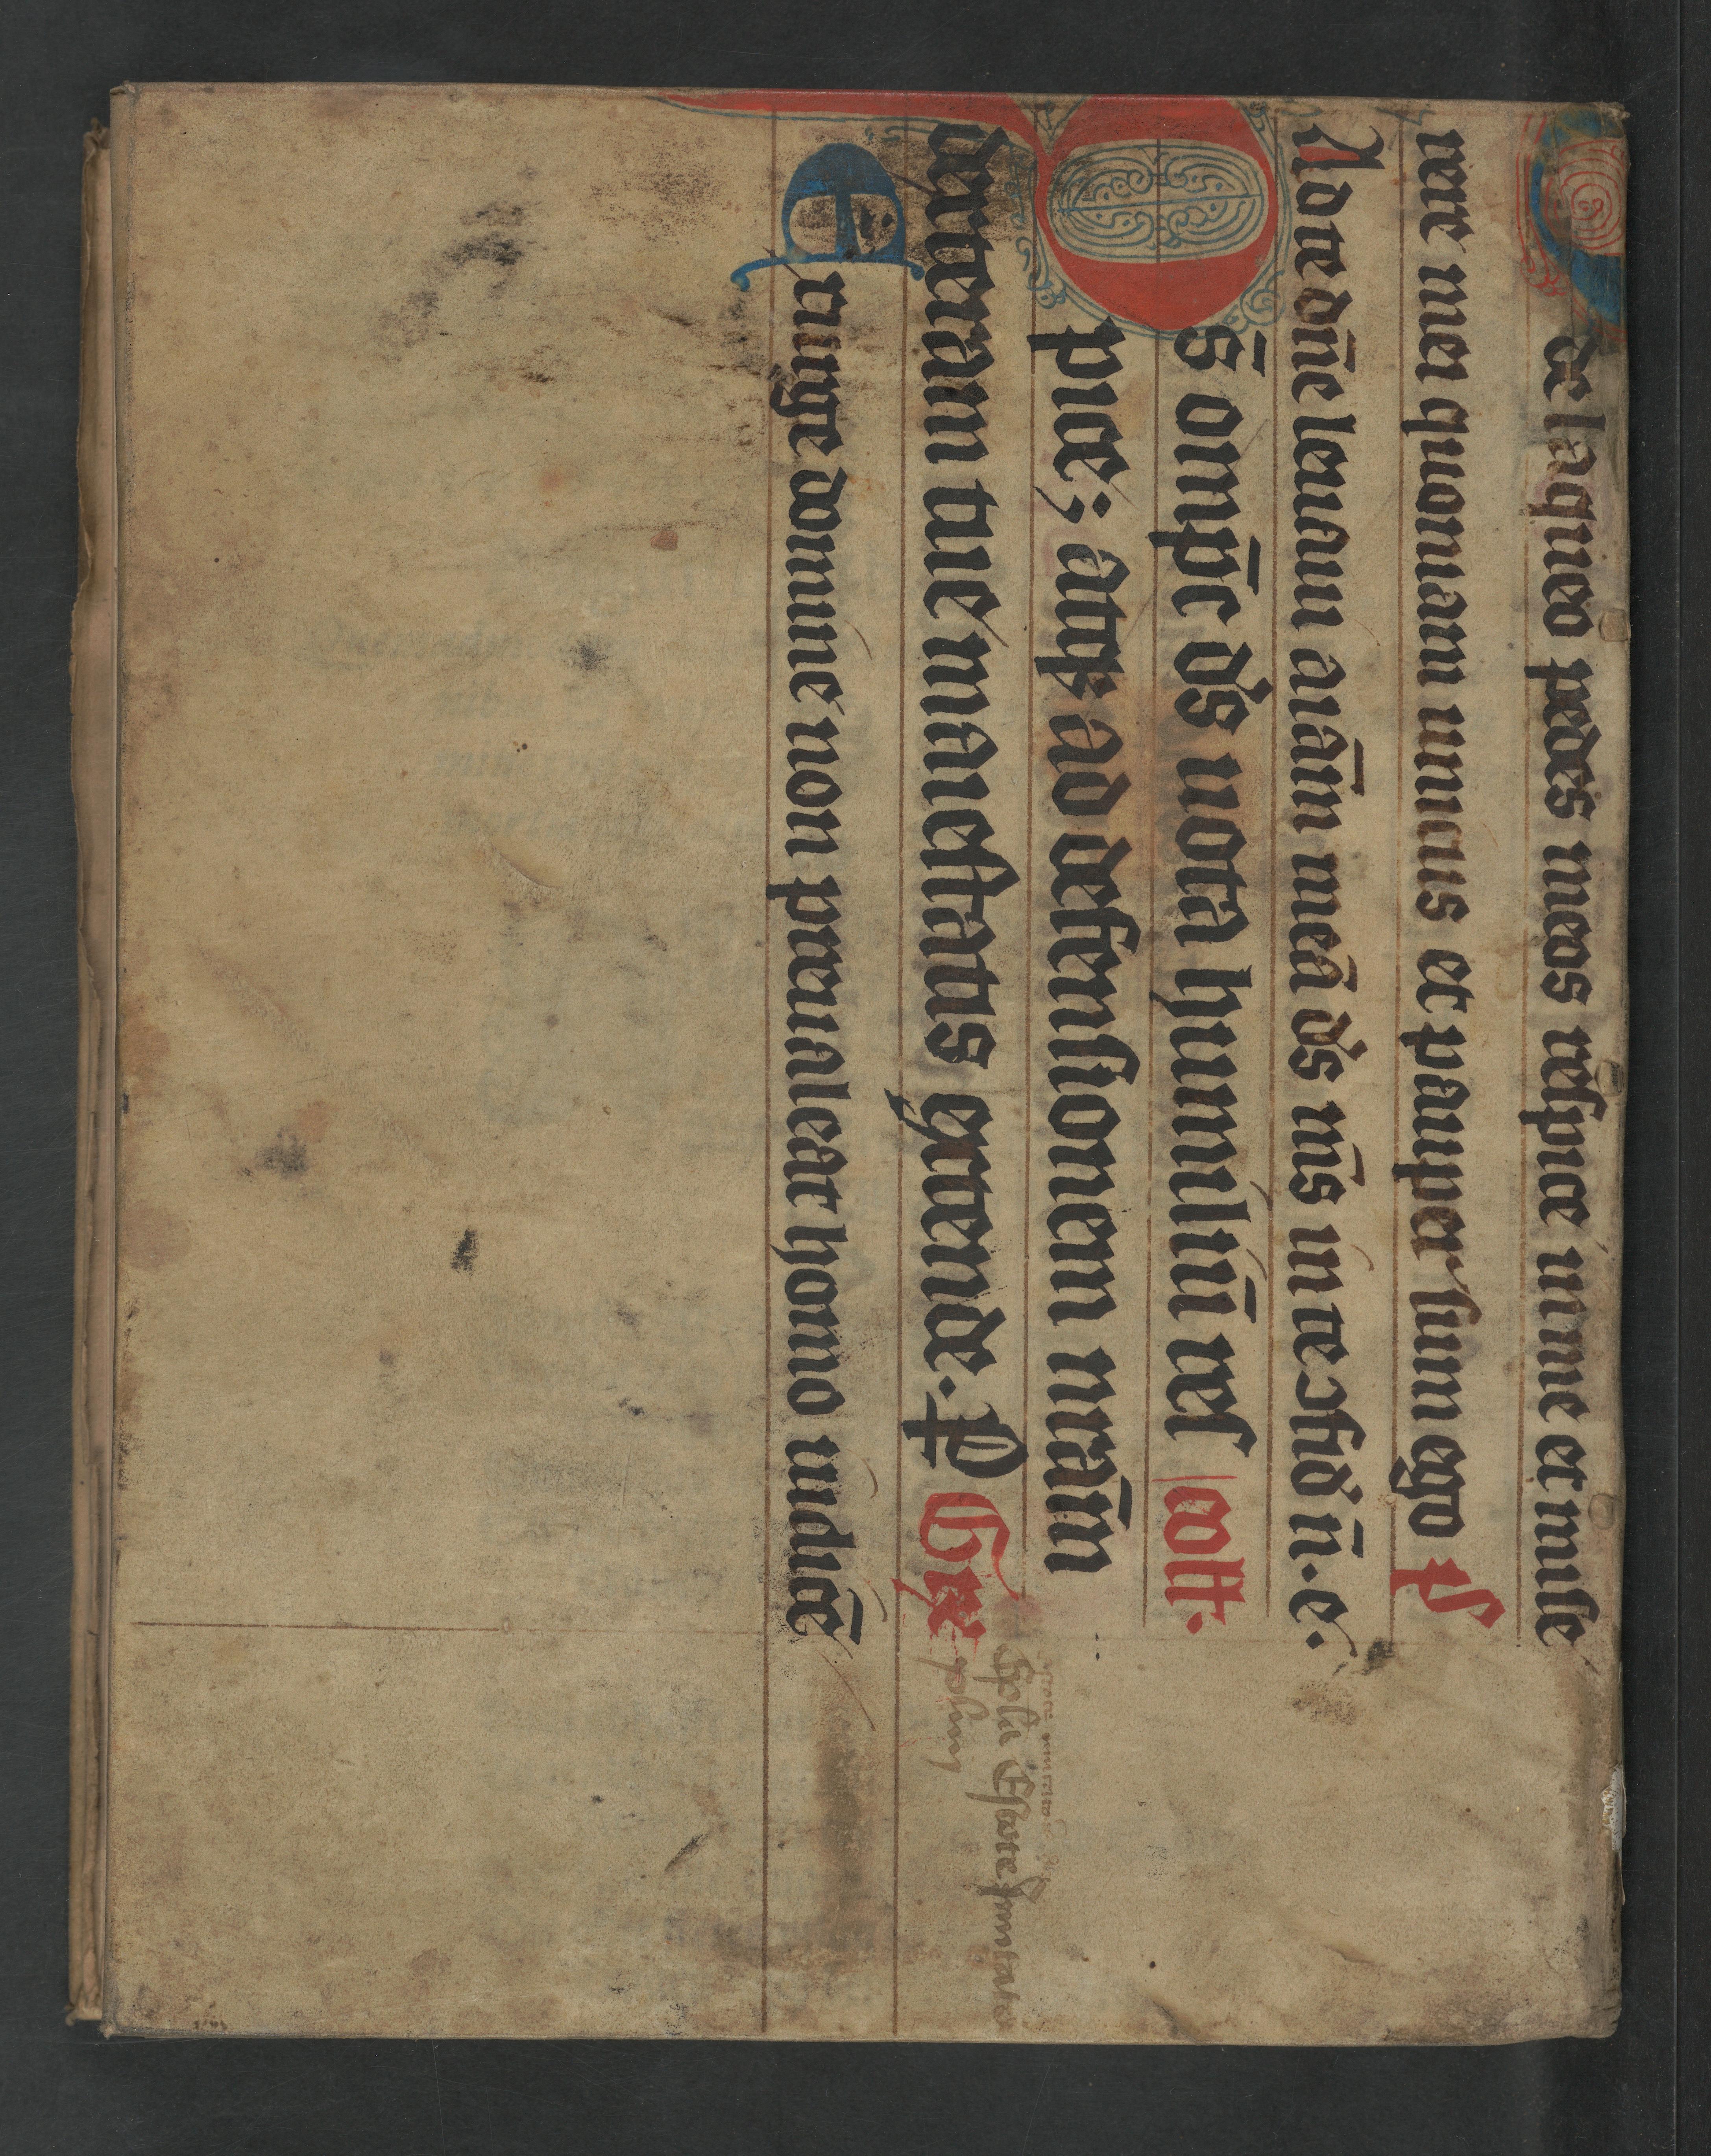 de laqueo pedes meos respice in me et mise
rere mei quoniam unicus et pauper sum ego ps
Ad te dñe leuaui aiām meā ds ms in te ꝯfido n̄. e.
S omp̄c ds uota humiliū res colltꝭ
pice; atqꝫ ad defensionem nr̄am
dexteram tue maiestatis extende. P Gr̄
Exurge domine non preualeat homo iudicē